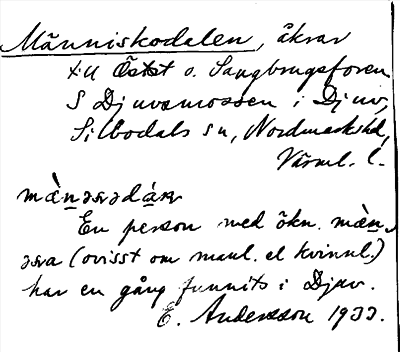 Människodalen, åkrar
till Östst o. Sangbrugsforen
S Djuvsmossen i Djuv,
Silbodals sn, Nordmarks hd,
Värml. l.
En person med ökn. män-
əsra (ovisst om manl. el kvinnl.)
har en gång funnits i Djuv.
E. Andersson 1933.